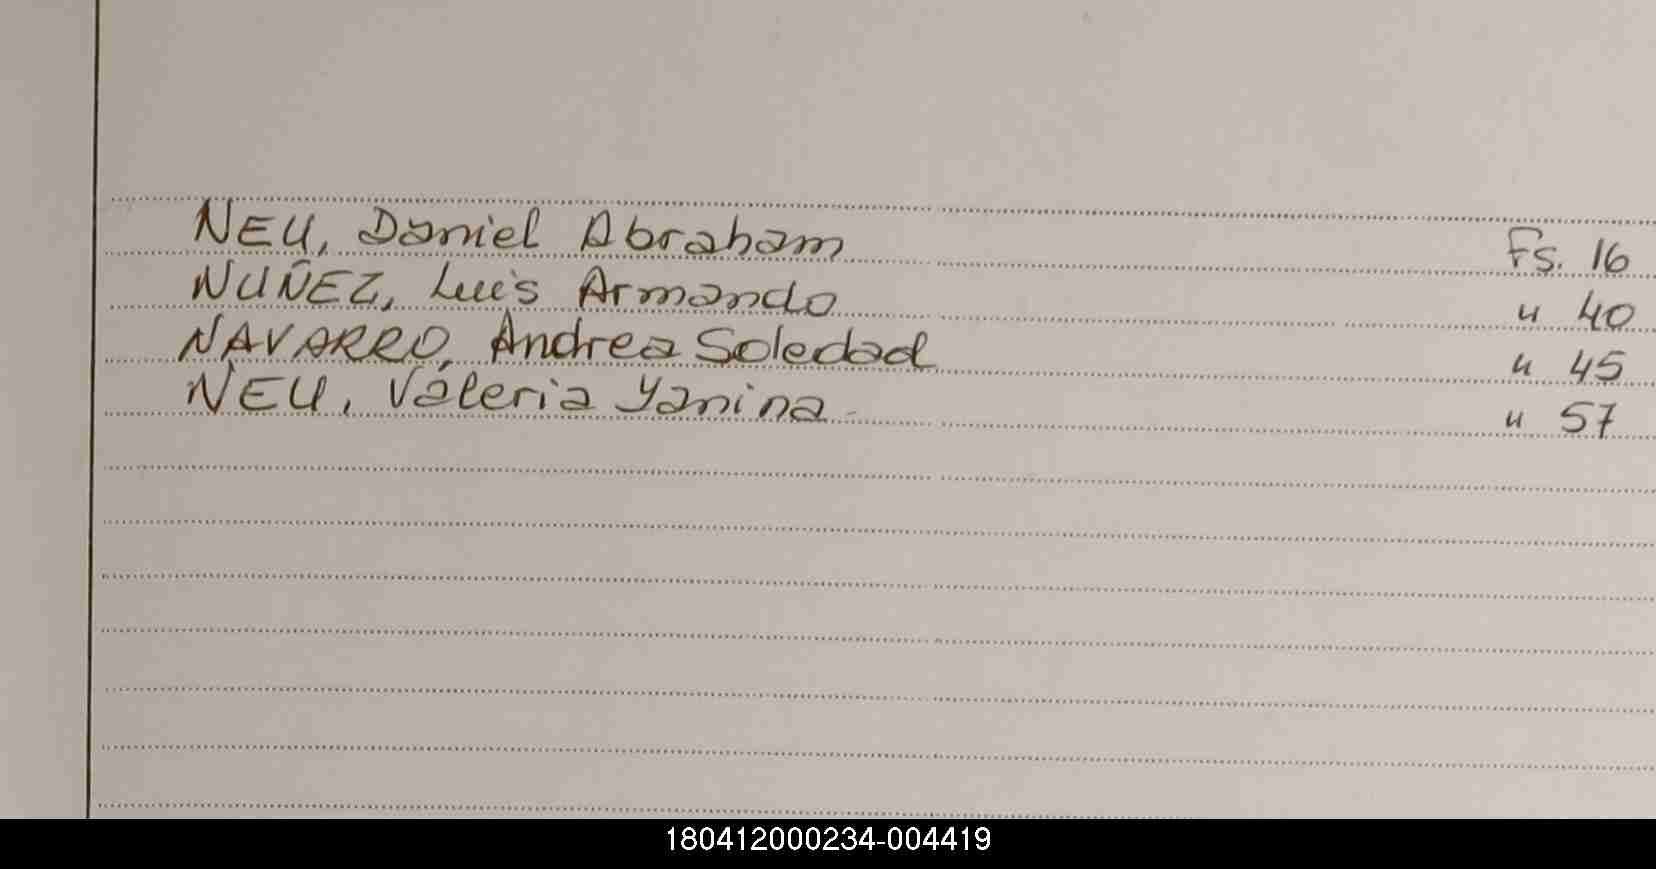 NEU, Daniel Abraham Fs. 16
NUÑEZ, Luis Armando " 40
NAVARRO, Andrea Soledad " 45
NEU, Valeria Yanina " 57
180412000234-004419